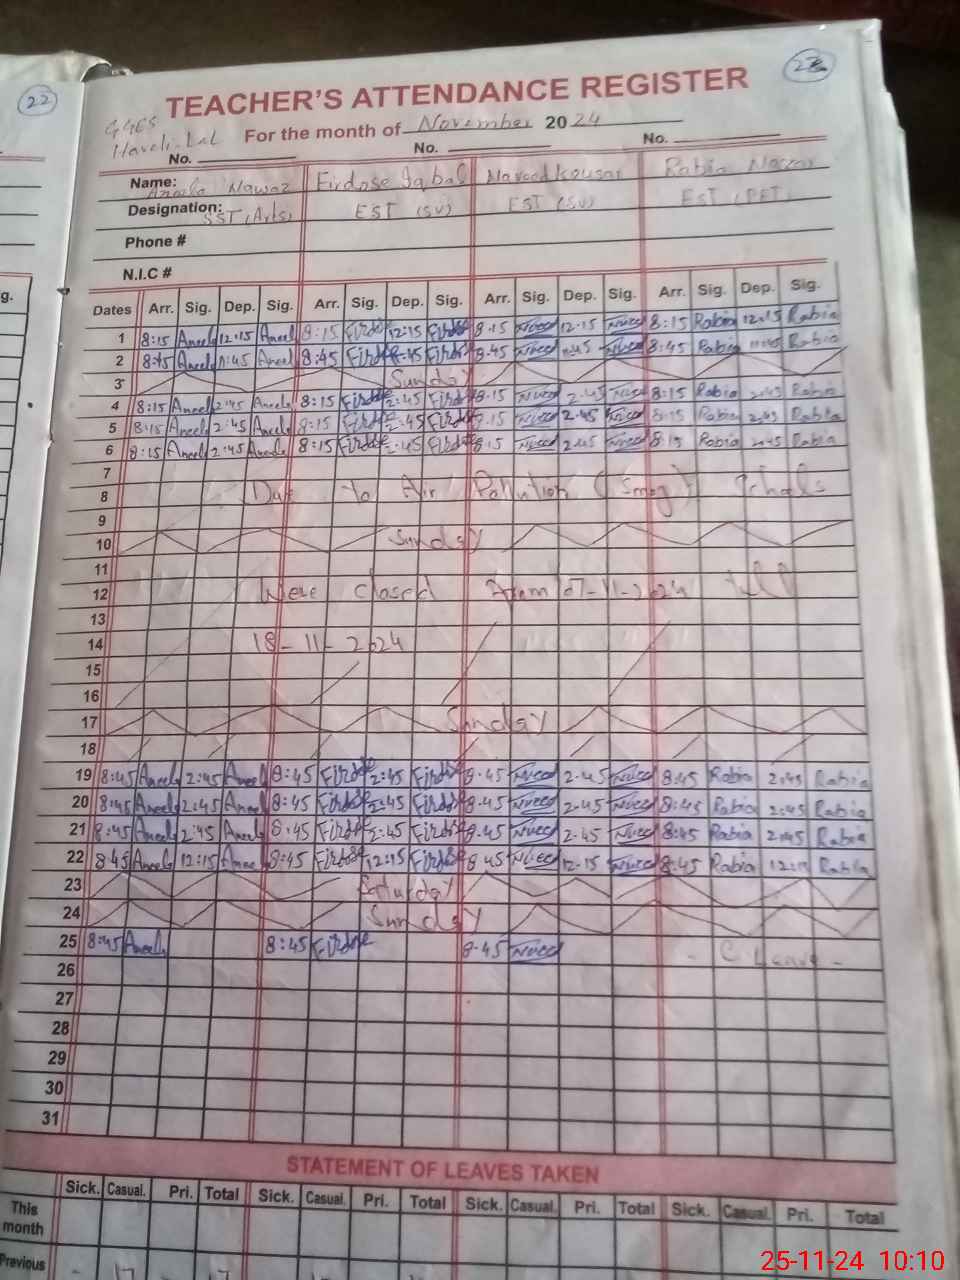 22
22
TEACHER'S ATTENDANCE REGISTER
GGES
Haveli Lal
For the month of November 2024
No. No. No.
Name: Aneela Nawaz Firdose Iqbal Naveed Kausar Rabia Nawaz
Designation: SST (Arts) EST (SV) EST (SV) EST (PET)
Phone #
N.I.C #
g.
Dates Arr. Sig. Dep. Sig. Arr. Sig. Dep. Sig. Arr. Sig. Dep. Sig. Arr. Sig. Dep. Sig.
1 8:15 Aneela 12:15 Aneela 8:15 Firdose 12:15 Firdose 8.15 12.15 8:15 Rabia 12:15 Rabia
2 8:45 Aneela 11:45 Aneela 8:45 Firdose Firdose 8.45 11.45 8:45 Rabia 11:45 Rabia
3 Sunday
4 8:15 Aneela 2:45 Aneela 8:15 Firdose 2:45 Firdose 8.15 2.45 8:15 Rabia 2:45 Rabia
5 8:15 Aneela 2:45 Aneela 8:15 Firdose 2:45 Firdose 8.15 2.45 8:15 Rabia 2:45 Rabia
6 8:15 Aneela 2:45 Aneela 8:15 Firdose 2:45 Firdose 8.15 2.45 8:15 Rabia 2:45 Rabia
7
8 Due to Air Pollution (Smog) Schools
9
10 Sunday
11
12 Were closed from 07-11-2024 till
13
14 18-11-2024
15
16
17 Sunday
18
19 8:45 Aneela 2:45 Aneela 8:45 Firdose 2:45 Firdose 8.45 2.45 8:45 Rabia 2:45 Rabia
20 8:45 Aneela 2:45 Aneela 8:45 Firdose 2:45 Firdose 8.45 2.45 8:45 Rabia 2:45 Rabia
21 8:45 Aneela 2:45 Aneela 8:45 Firdose 2:45 Firdose 8.45 2.45 8:45 Rabia 2:45 Rabia
22 8:45 Aneela 12:15 Aneela 8:45 Firdose 12:15 Firdose 8.45 12.15 8:45 Rabia 12:15 Rabia
23 Saturday
24 Sunday
25 8:45 Aneela 8:45 Firdose 8.45 - C. Leave -
26
27
28
29
30
31
STATEMENT OF LEAVES TAKEN
Sick. Casual. Pri. Total Sick. Casual. Pri. Total Sick. Casual. Pri. Total Sick. Casual. Pri. Total
This month
Previous
25-11-24 10:10